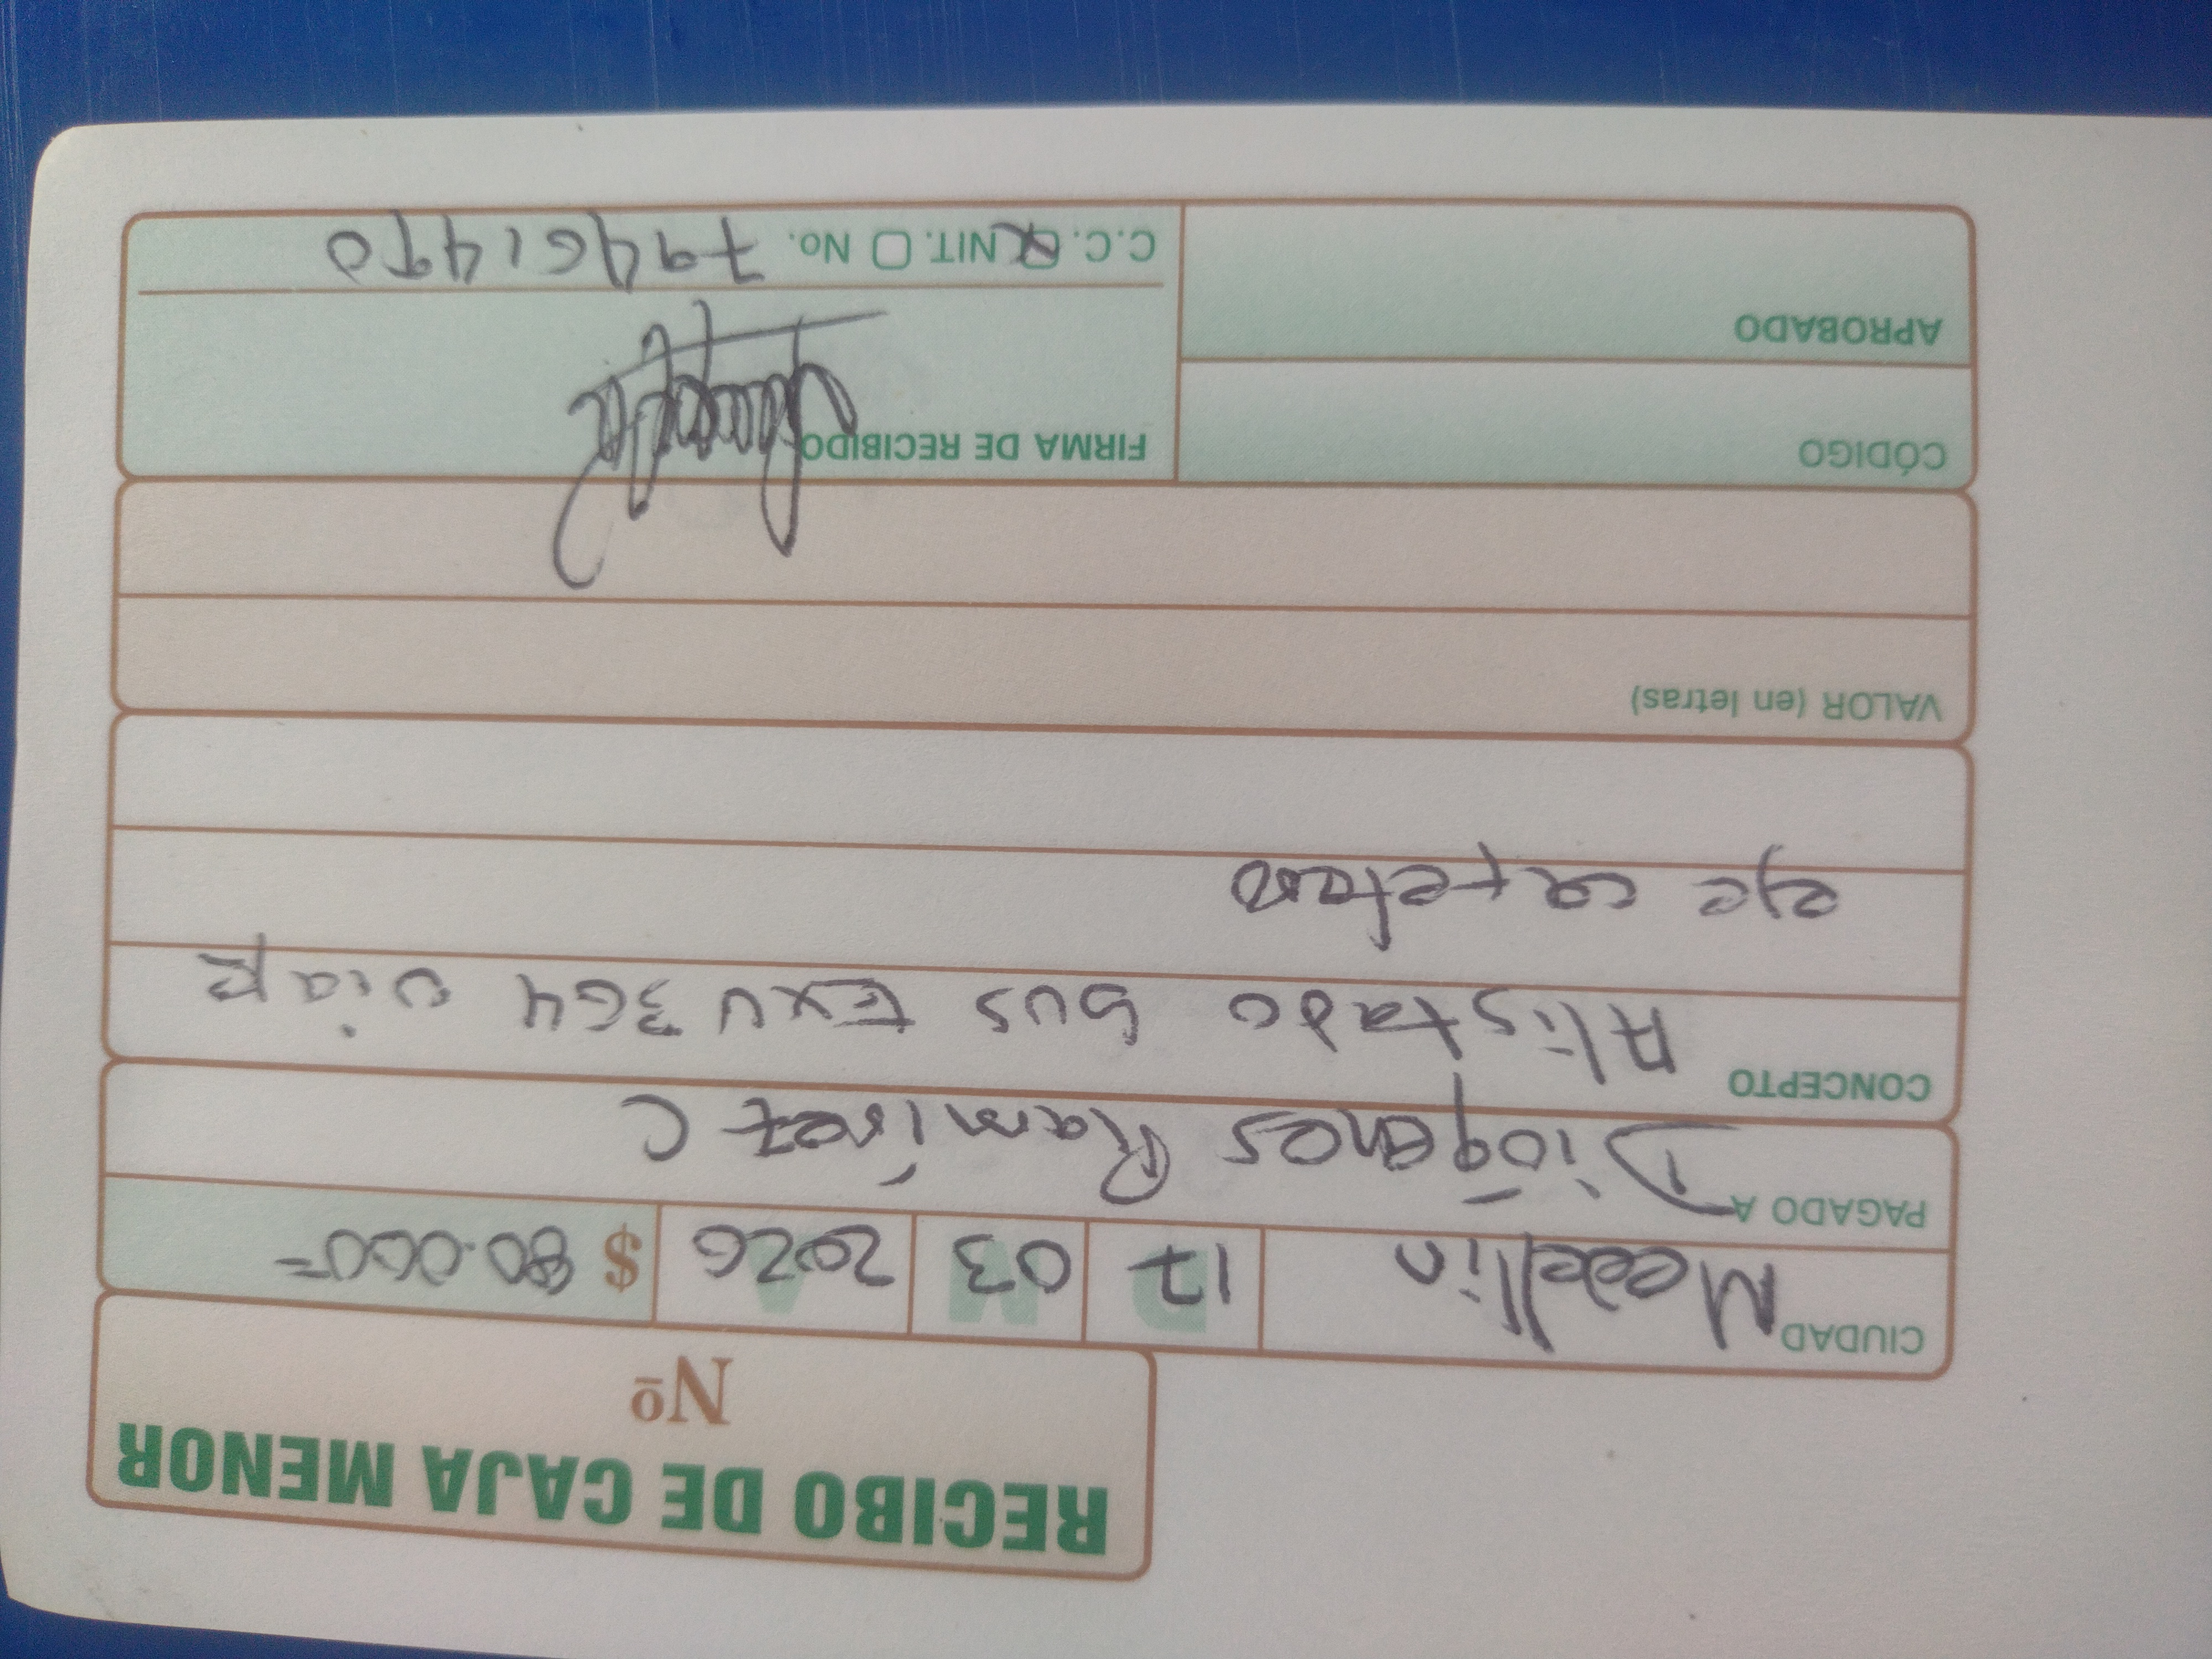 RECIBO DE CAJA MENOR
Nº
CIUDAD Medellin D 17 M 03 A 2026 $ 80.000=
PAGADO A Diógenes Ramírez C
CONCEPTO Alistado bus EXU 364 viaje
eje cafetero
VALOR (en letras)
CÓDIGO
FIRMA DE RECIBIDO
APROBADO
C.C. NIT. No. 79461490